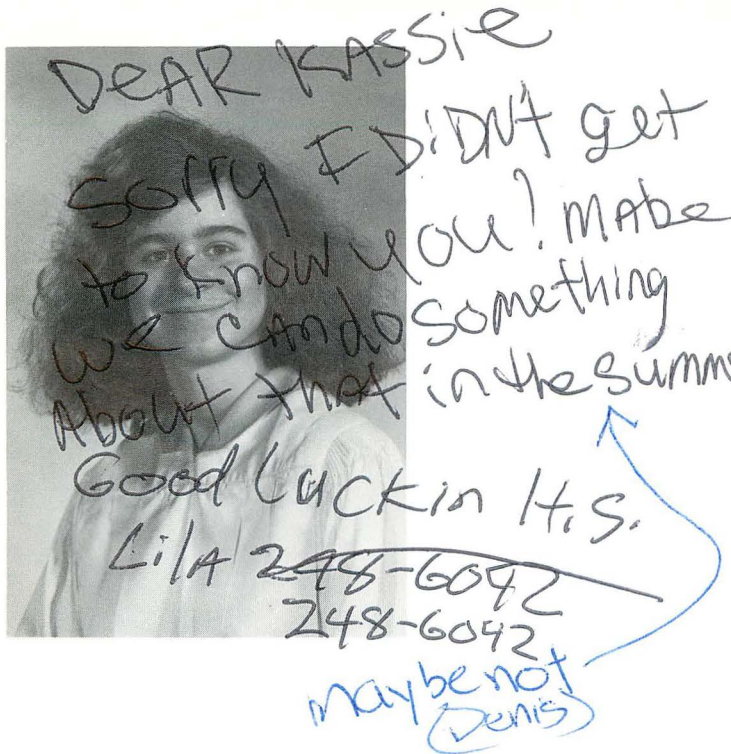 DEAR KASSiE
Sorry I DiDNt get
to know you! MABe
we can do something
About that in the summ
Good Luck in H.S.
LilA 248-6042
248-6042
maybe not
(Denis)